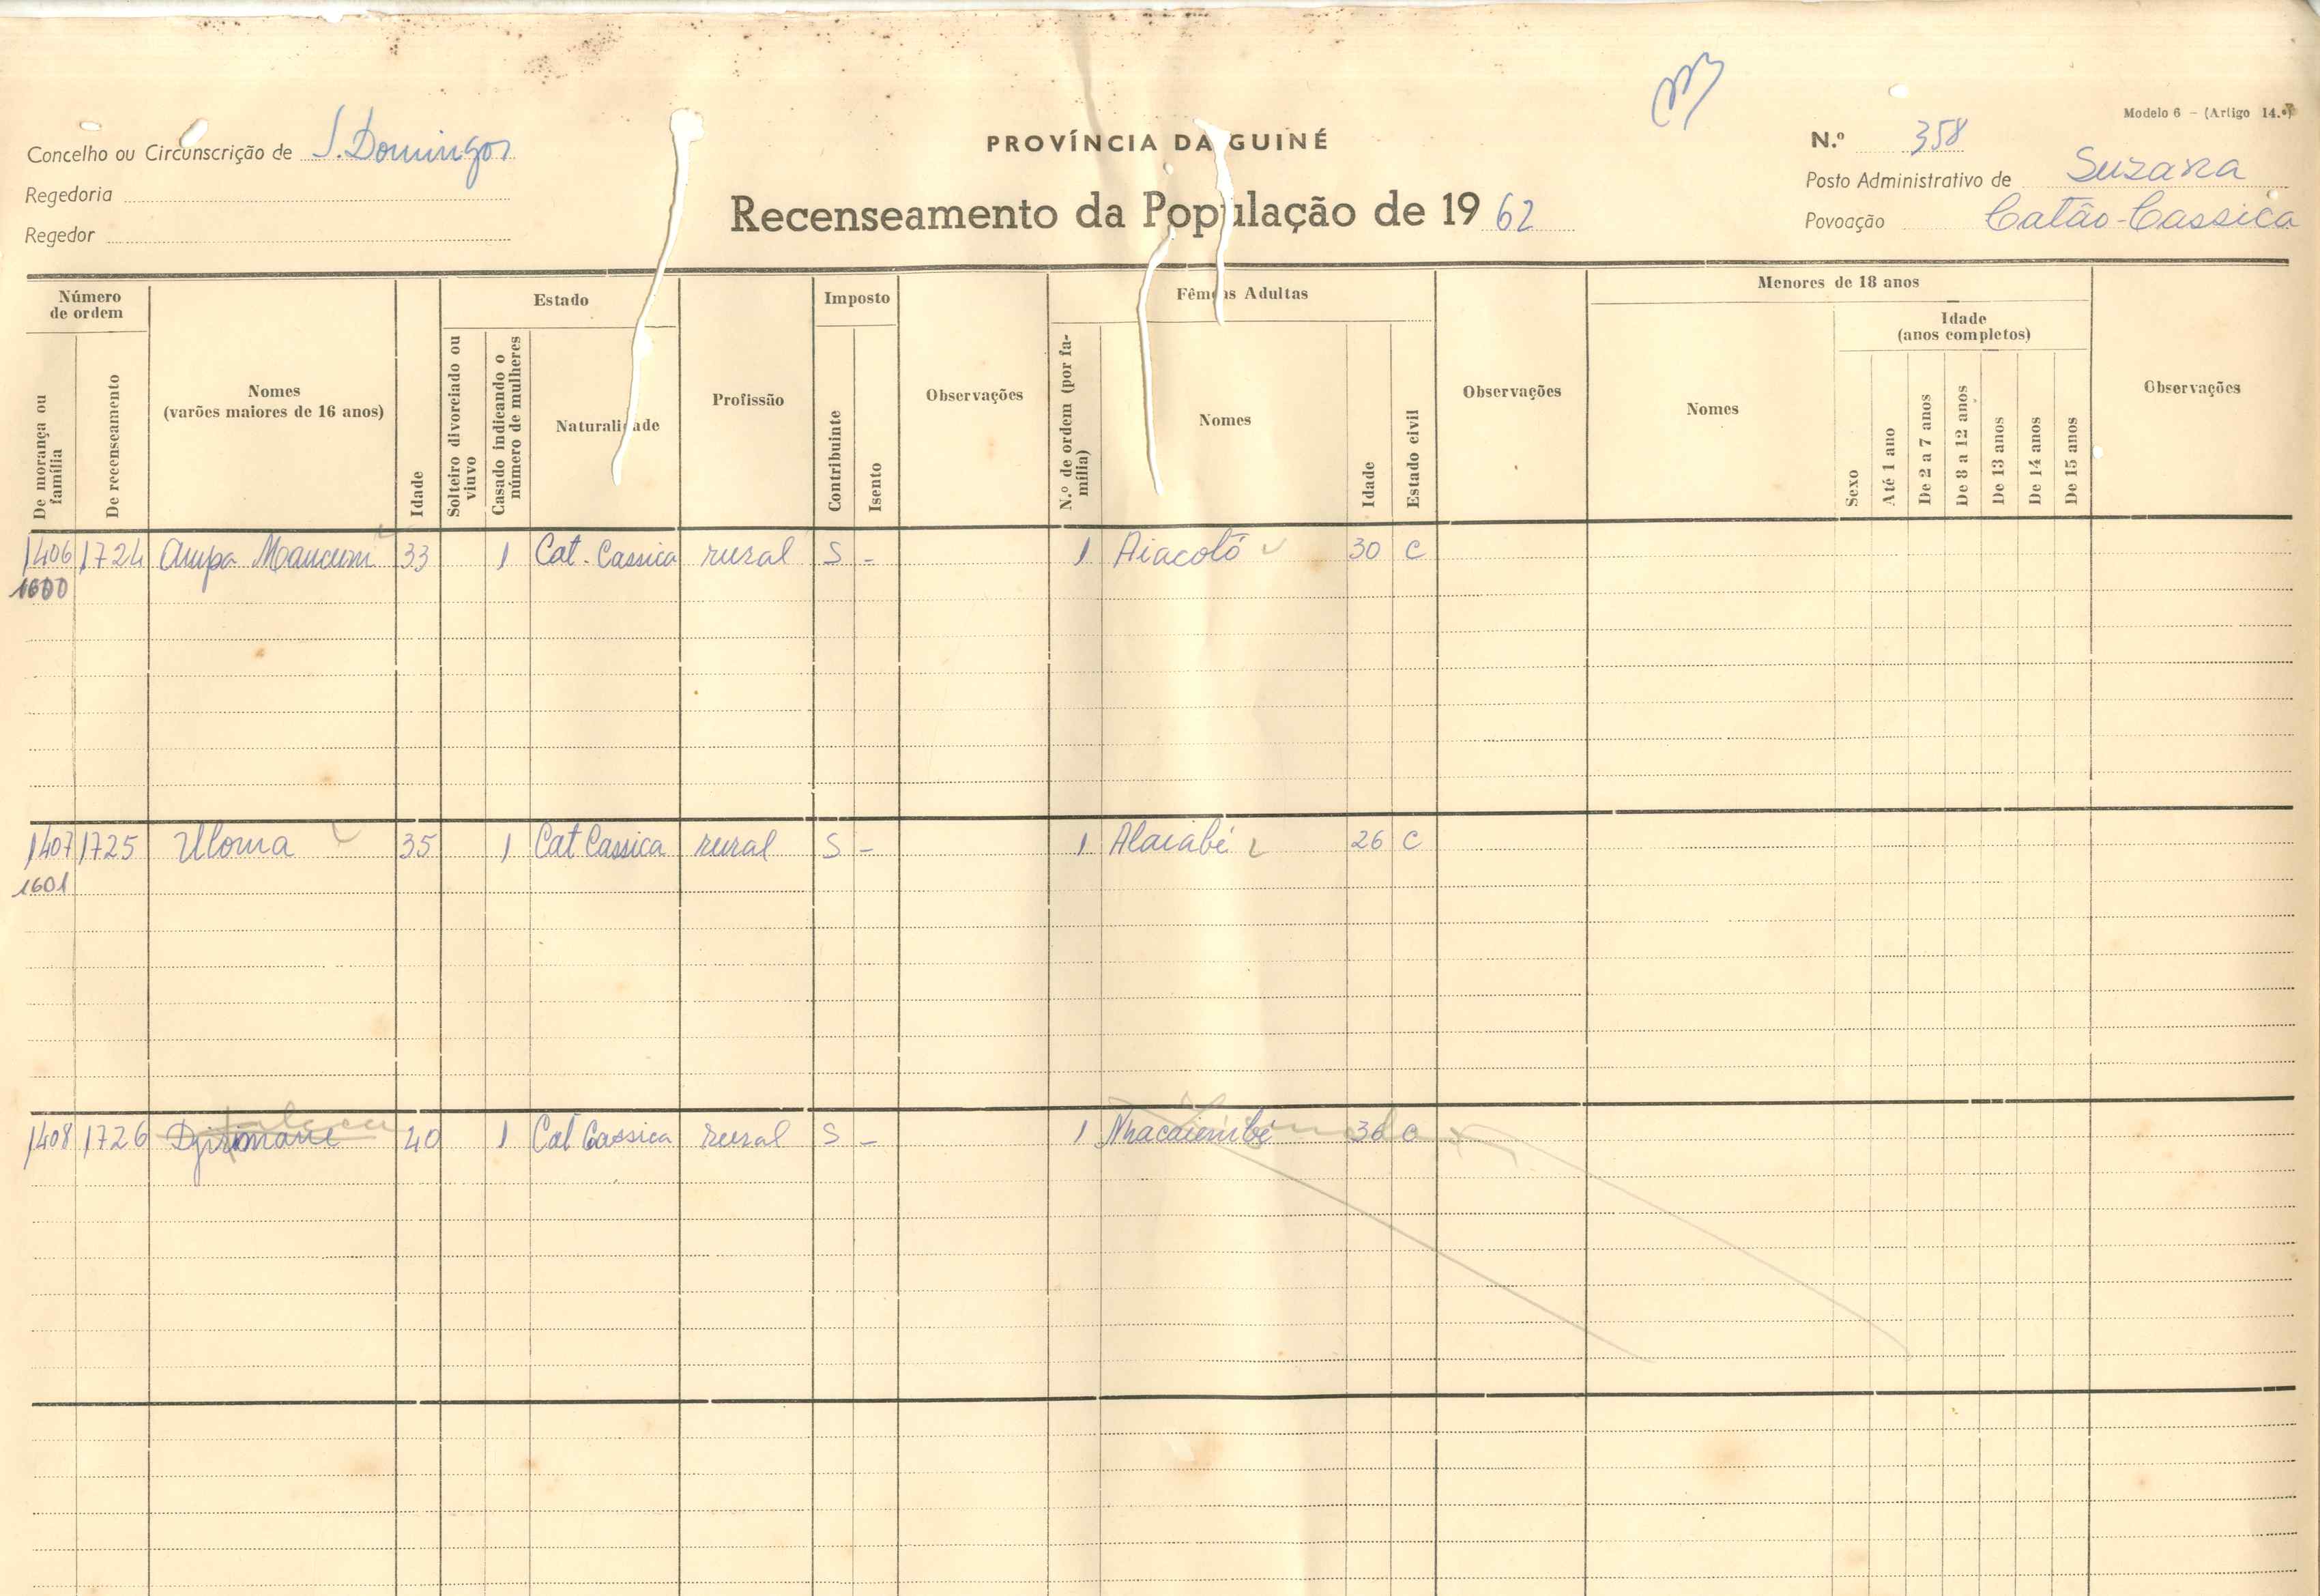 Modelo 6 - (Artigo 14.º)
Concelho ou Circunscrição de S. Domingos
PROVÍNCIA DA GUINÉ
N.º 358
Regedoria
Recenseamento da População de 1962
Posto Administrativo de Suzana
Regedor
Povoação Catão-Cassica
Número de ordem
De morança ou família
De recenseamento
Nomes (varões maiores de 16 anos)
Idade
Estado
Solteiro divorciado ou viuvo
Casado indicando o número de mulheres
Naturalidade
Profissão
Imposto
Contribuinte
Isento
Observações
Fêmeas Adultas
N.º de ordem (por família)
Nomes
Idade
Estado civil
Observações
Menores de 18 anos
Nomes
Sexo
Idade (anos completos)
Até 1 ano
De 2 a 7 anos
De 8 a 12 anos
De 13 anos
De 14 anos
De 15 anos
Observações
1406 1724 Ampa Mancum 33 1 Cat. Cassica rural S - 1 Aiacoló 30 C
1600
1407 1725 Uloma 35 1 Cat Cassica rural S - 1 Alaiabé 26 C
1601
1408 1726 40 1 Cat Cassica rural S - 1 Nhacaiembé 36 C